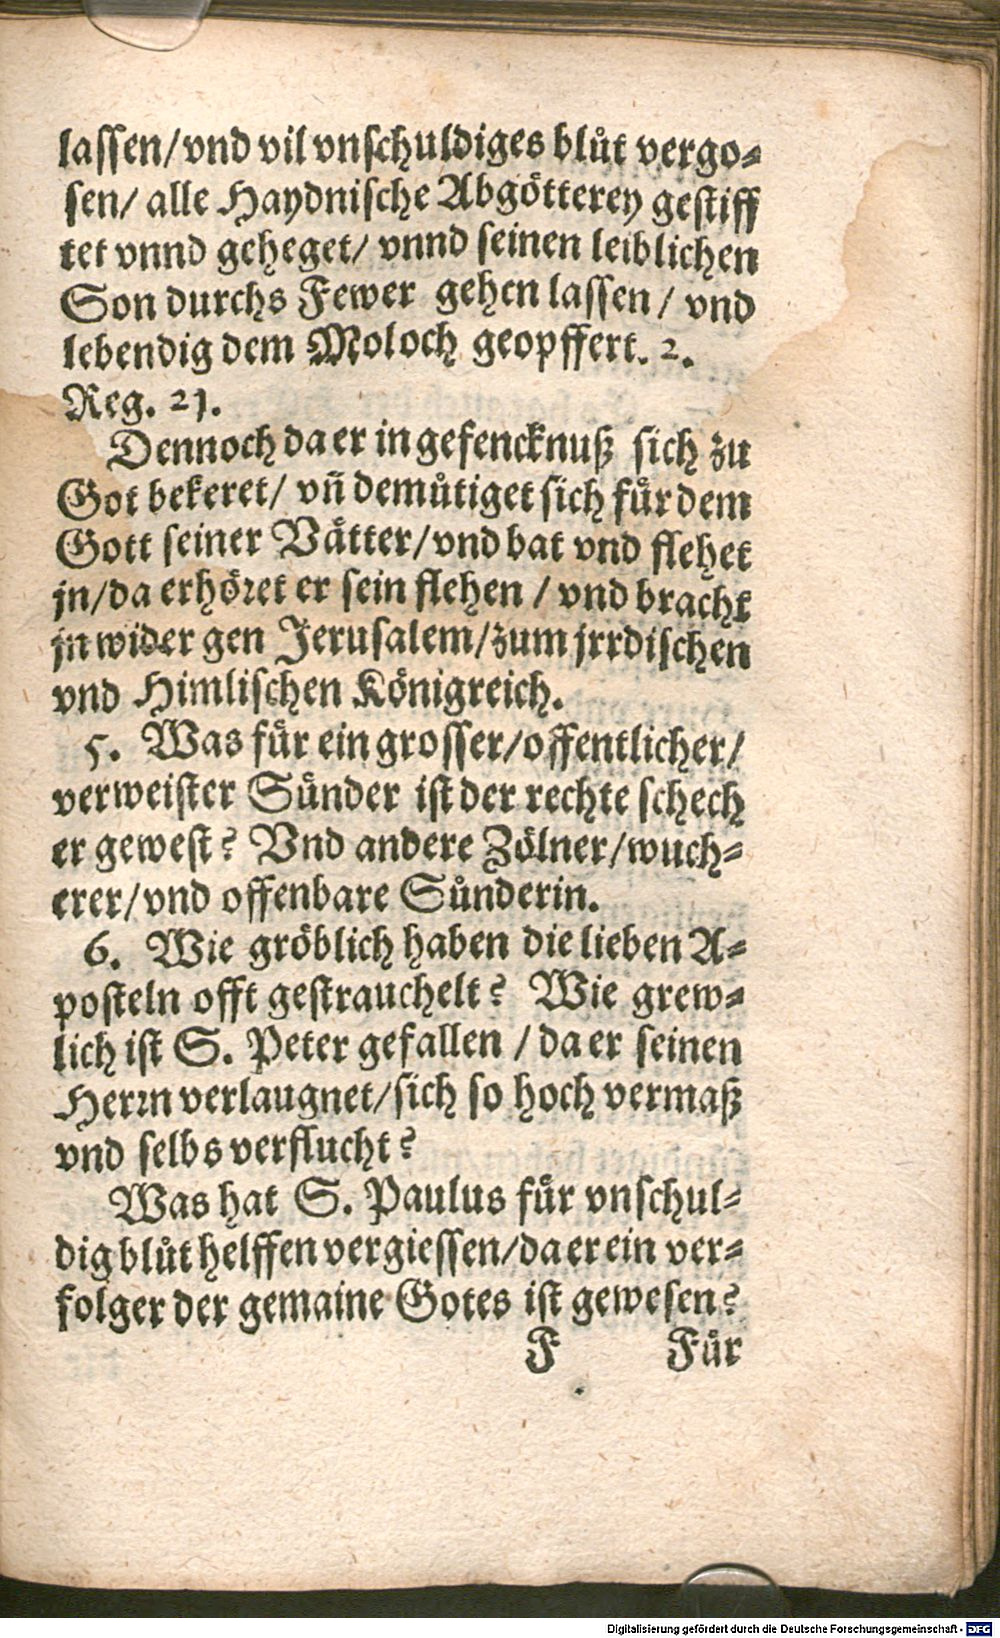 lassen/vnd vil vnschuldiges blůt vergo⸗
sen/ alle Haydnische Abgötterey gestiff
tet vnnd geheget/ vnnd seinen leiblichen
Son durchs Fewer gehen lassen / vnd
lebendig dem Moloch geopffert. 2.
Reg. 21.
Dennoch da er in gefencknuß sich zu
Got bekeret/ vñ demůtiget sich fůr dem
Gott seiner Vätter/vnd bat vnd flehet
jn/da erhöꝛet er sein flehen / vnd bracht
jn wider gen Jerusalem/zum jrrdischen
vnd Himlischen Königreich.
5. Was fůr ein grosser/offentlicher/
verweister Sůnder ist der rechte schech
er gewest? Vnd andere Zölner/wuch⸗
erer/vnd offenbare Sůnderin.
6. Wie gröblich haben die lieben A⸗
posteln offt gestrauchelt? Wie grew⸗
lich ist S. Peter gefallen / da er seinen
Herꝛn verlaugnet/sich so hoch vermaß
vnd selbs verflucht?
Was hat S. Paulus fůr vnschul⸗
dig blůt helffen vergiessen/da er ein ver⸗
folger der gemaine Gotes ist gewesen?
F Fůr
Digitalisierung gefördert durch die Deutsche Forschungsgemeinschaft - DFG